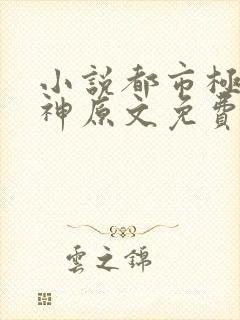 小說都市極
神原文免費
雲之錦